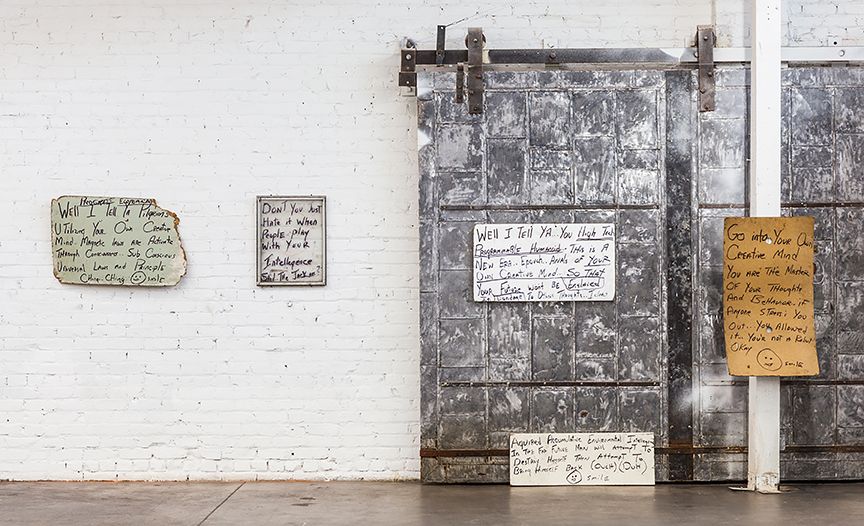 Well I Tell Ya Pilgrims
Utilizing Your Own Creative
Mind. Magnetic laws are Activate
Through Conscious.. Sub Conscious
Universal Laws and Principle
Ching. Ching smile
DON'T You Just
Hate it When
People play
With Your
Intelligence
Said The Jackass?
Well I Tell Ya.. You High Tech
Programmable Humanoid. This is A
New Era.. Epoch. Avails of YOUR
Own Creative Mind... So That
Your Future Wont Be Enslaved
Go into Your Own
Creative Mind
You are The Master
Of Your Thoughts
And Behavior.. if
Anyone Stress You
Out.. You Allowed
it.. You're not A
Okay smile
Acquired Accumulative Environmental
In The Far Future Man will Attempt To
Destroy Then Attempt To
Bring Himself Back (Ouch) (Ouh)
smile